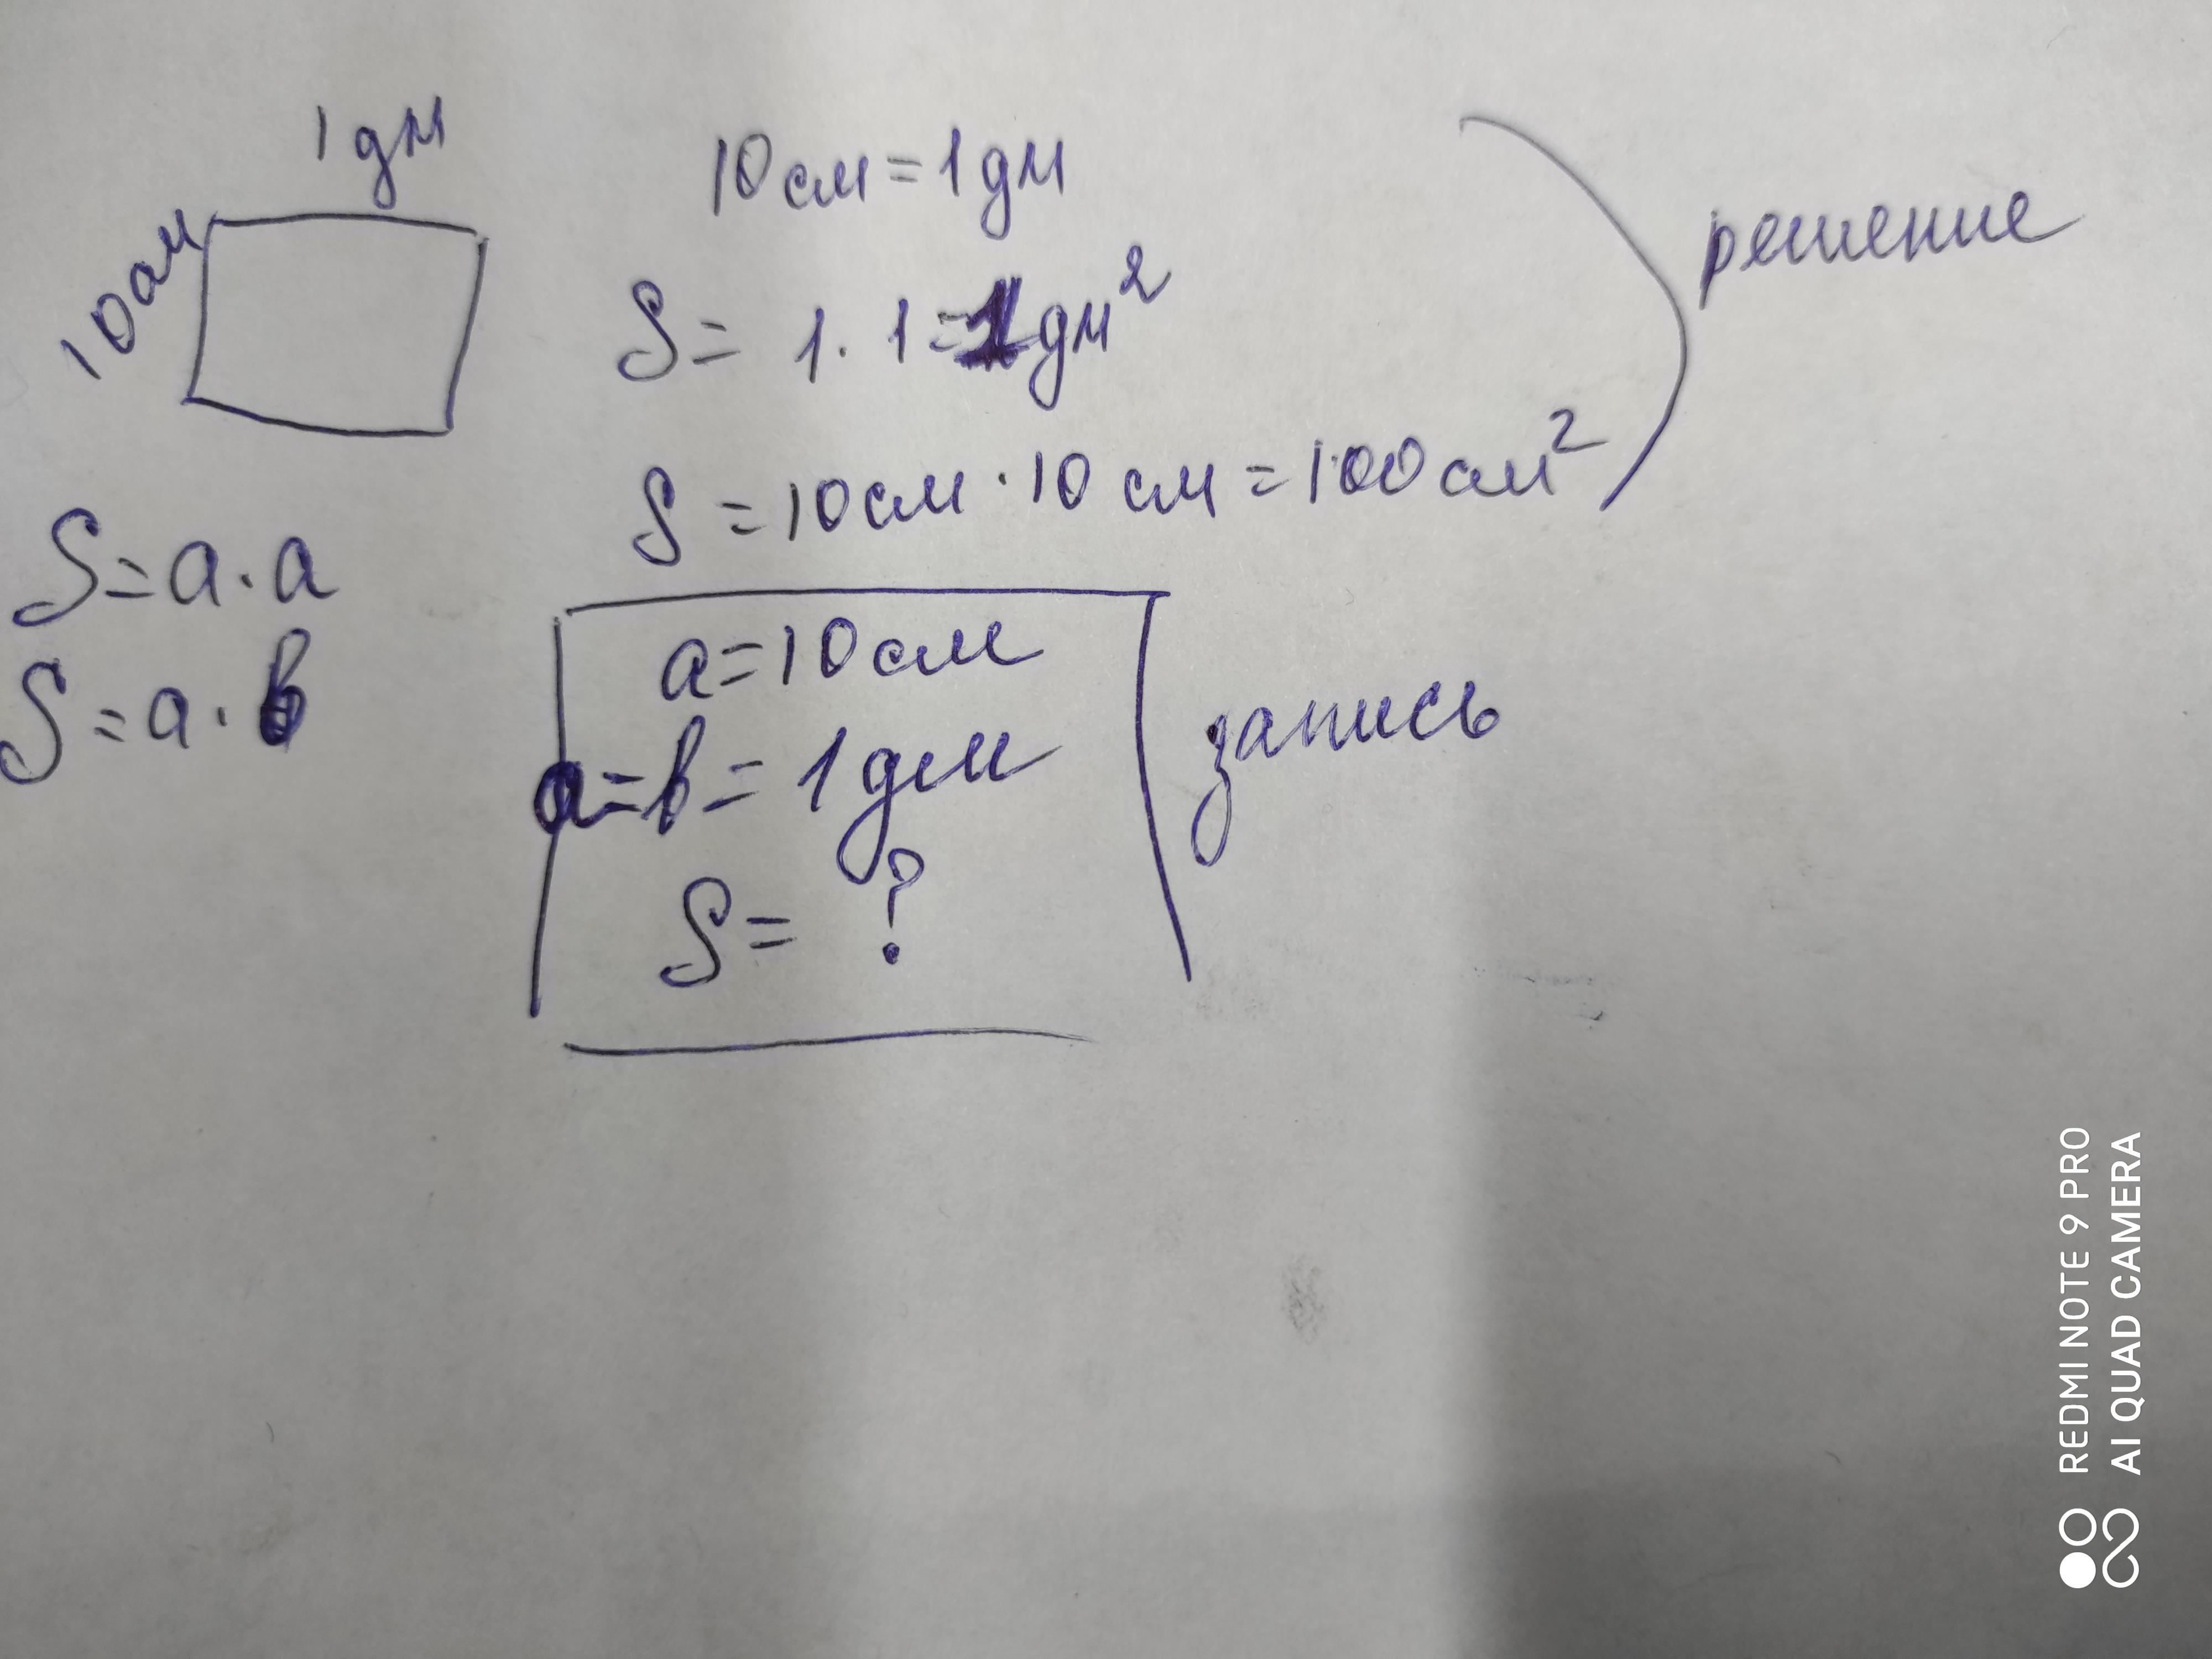 1 дм
10 см
10 см = 1 дм
S = 1 · 1 = 1 дм²
S = 10 см · 10 см = 100 см²
решение
S = a · a
S = a · b
a = 10 см
a = b = 1 дм
S = ?
запись
REDMI NOTE 9 PRO
AI QUAD CAMERA